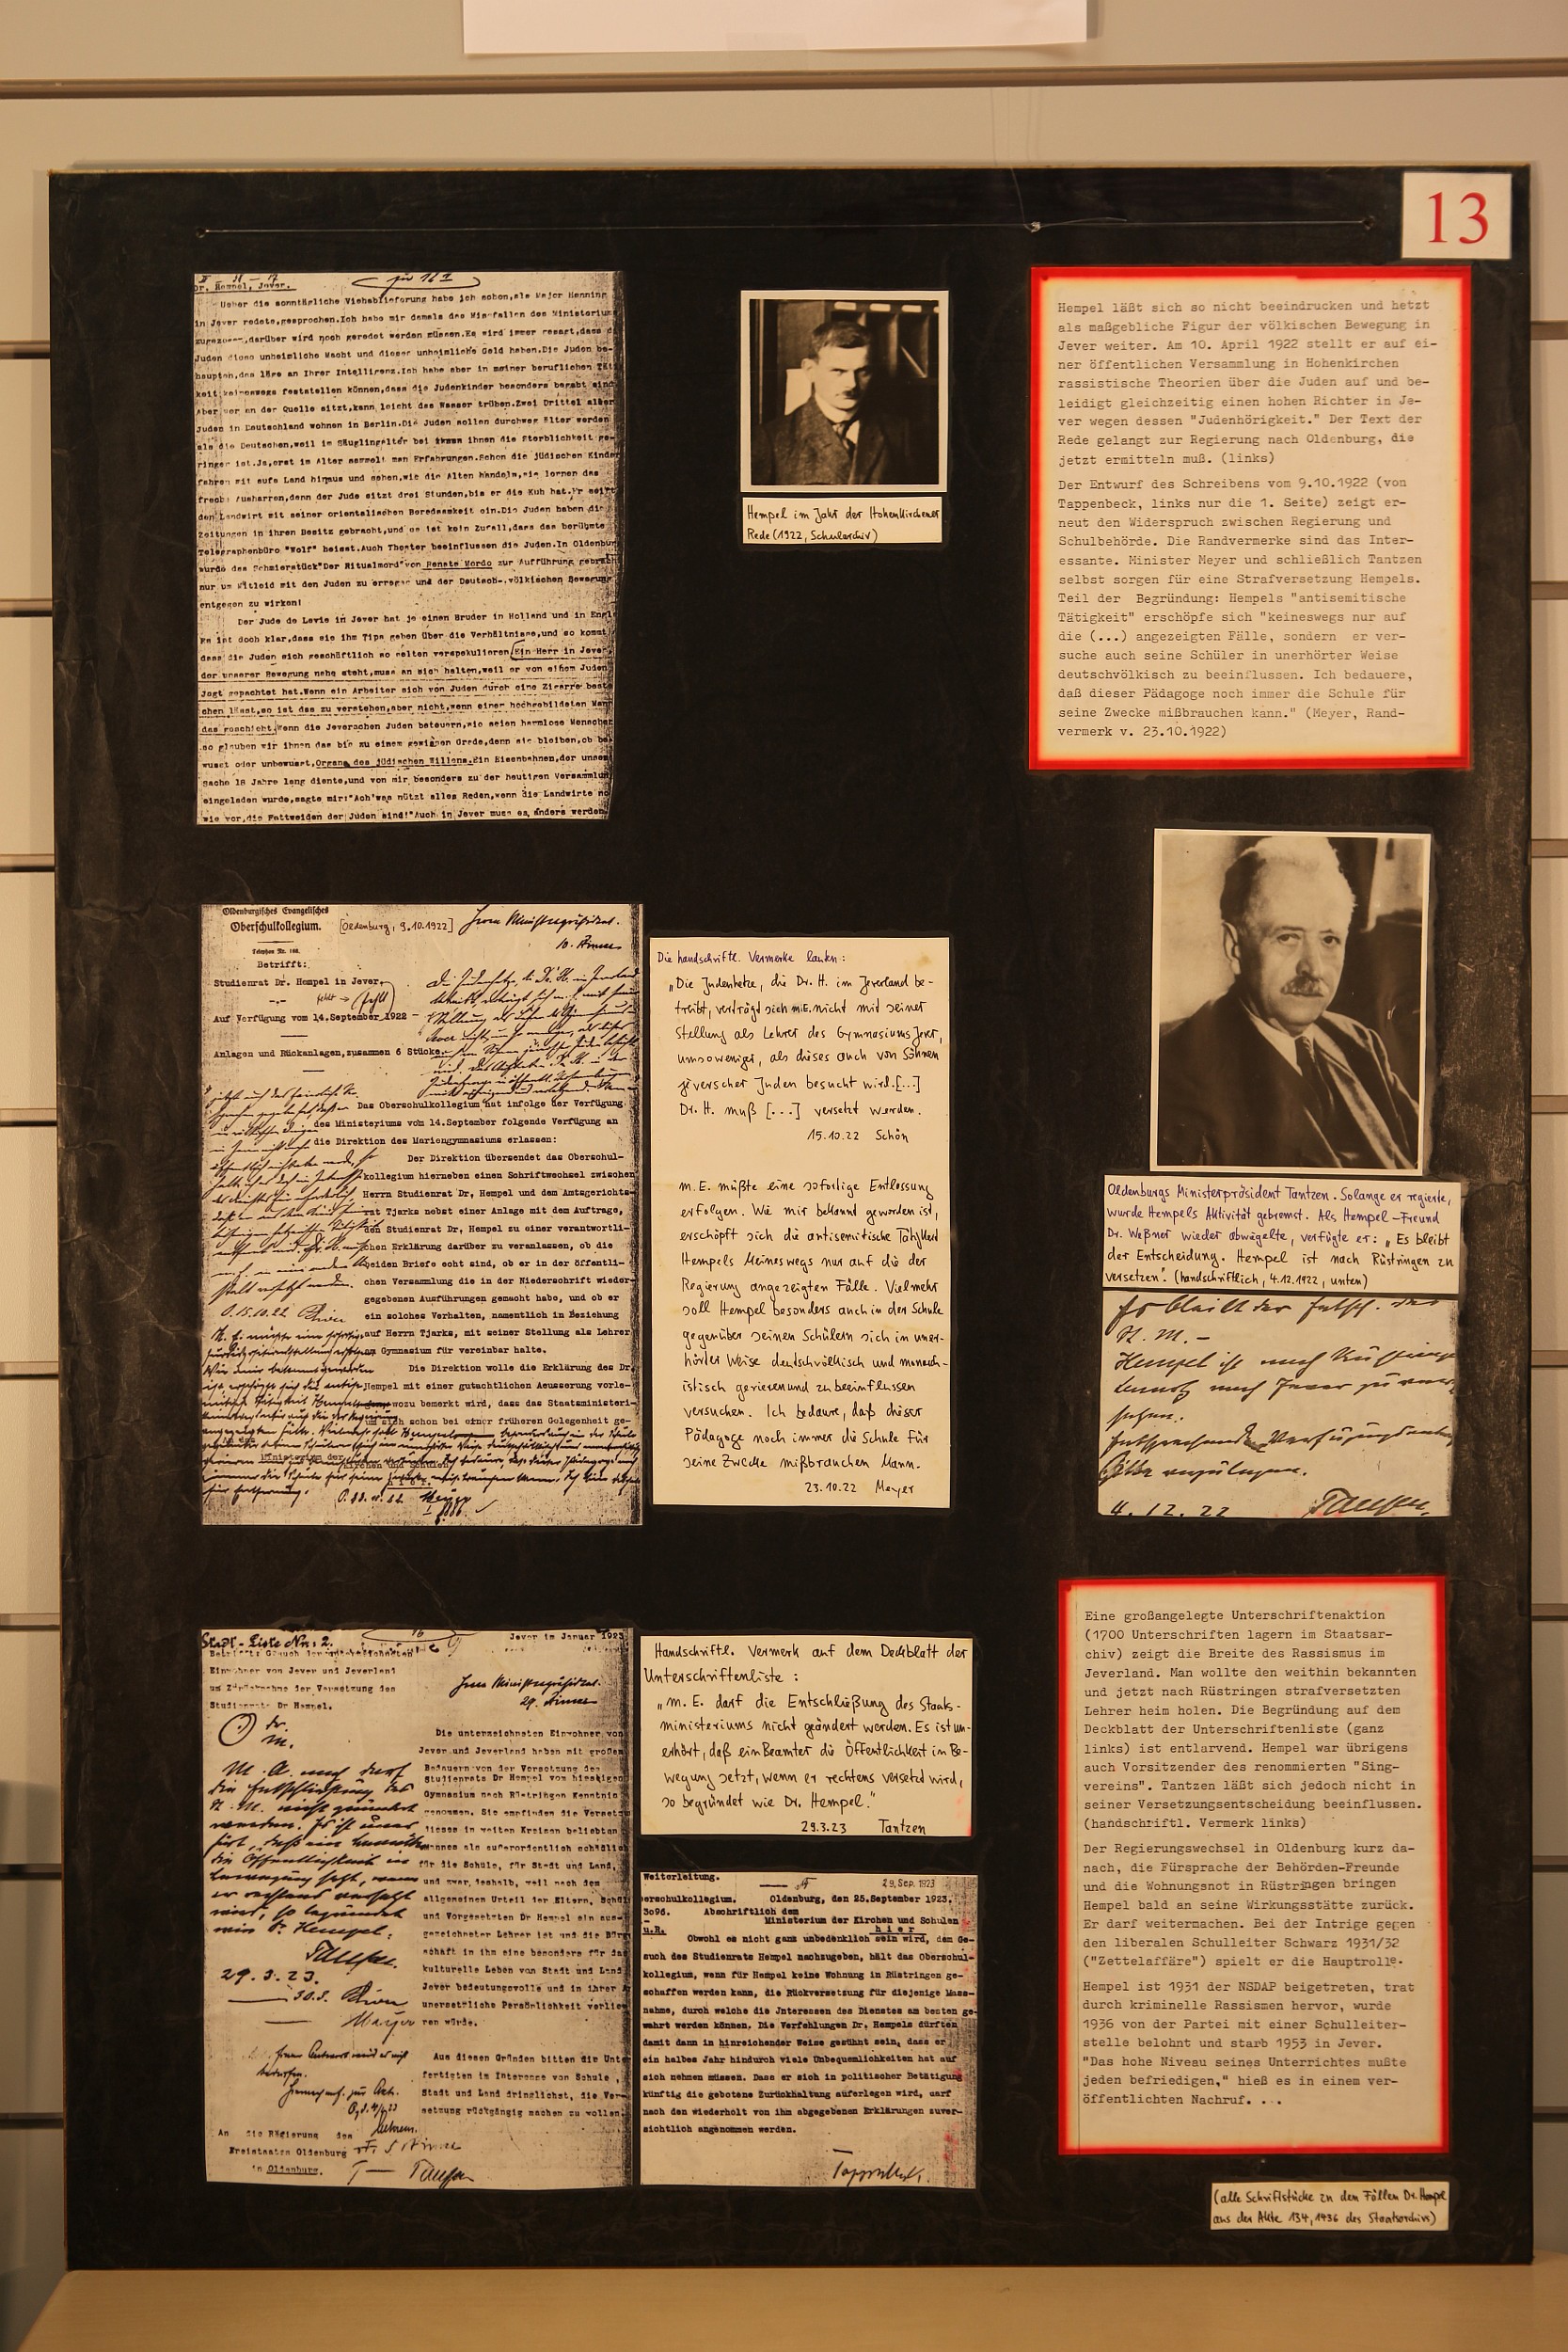 13
Dr. Hempel, Jever.
Ueber die sonntägliche Viehablieferung habe ich schon, als Major Henning
in Jever redete, gesprochen. Ich habe mir damals das Missfallen des Ministeriums
darüber wird noch geredet werden müssen. Es wird immer gesagt, dass d
Juden diese unheimliche Macht und dieses unheimliche Geld haben. Die Juden be-
haupten, das läge an ihrer Intelligenz. Ich habe aber in meiner beruflichen Tät
keit keineswegs feststellen können, dass die Judenkinder besonders begabt sind
Aber wer an der Quelle sitzt, kann leicht das Wasser trüben. Zwei Drittel aller
Juden in Deutschland wohnen in Berlin. Die Juden sollen durchweg älter werden
als die Deutschen, weil im Säuglingalter bei ihnen die Sterblichkeit ge-
ringer ist. Ja, erst im Alter sammelt man Erfahrungen. Schon die jüdischen Kinder
fahren mit aufs Land hinaus und sehen, wie die Alten handeln, sie lernen das
freche Ausharren, denn der Jude sitzt drei Stunden, bis er die Kuh hat. Er seift
den Landwirt mit seiner orientalischen Beredsamkeit ein. Die Juden haben die
Zeitungen in ihren Besitz gebracht, und es ist kein Zufall, dass das berühmte
Telegraphenbüro "Wolf" heisst. Auch Theater beeinflussen die Juden. In Oldenbur
wurde das Schmierstück "Der Ritualmord" von Renate Mordo zur Aufführung gebrach
nur um Mitleid mit den Juden zu erregen und der Deutsch-völkischen Bewegung
entgegen zu wirken!
Der Jude de Levie in Jever hat je einen Bruder in Holland und in Engl
Es ist doch klar, dass sie ihm Tips geben über die Verhältnisse, und so kommt
dass die Juden sich geschäftlich so selten verspekulieren. Ein Herr in Jever
der unserer Bewegung nahe steht, muss an sich halten, weil er von einem Juden
Jagt gepachtet hat. Wenn ein Arbeiter sich von Juden durch eine Zigarre beste
chen lässt, so ist das zu verstehen, aber nicht, wenn einer hochgebildeten Man
das geschieht. Wenn die Jeverschen Juden beteuern, sie seien harmlose Menschen
so glauben wir ihnen das bis zu einem gewissen Grade, denn sie bleiben, ob be-
wusst oder unbewusst, Organe des jüdischen Willens. Ein Eisenbahner, der unser
Sache 18 Jahre lang diente, und von mir besonders zu der heutigen Versammlun
eingeladen wurde, sagte mir: "Ach was nützt alles Reden, wenn die Landwirte no
wie vor, die Fettweiden der Juden sind!" Auch in Jever muss es anders werden
Hempel im Jahr der Hohenkirchener
Rede (1922, Schularchiv)
Hempel läßt sich so nicht beeindrucken und hetzt
als maßgebliche Figur der völkischen Bewegung in
Jever weiter. Am 10. April 1922 stellt er auf ei-
ner öffentlichen Versammlung in Hohenkirchen
rassistische Theorien über die Juden auf und be-
leidigt gleichzeitig einen hohen Richter in Je-
ver wegen dessen "Judenhörigkeit." Der Text der
Rede gelangt zur Regierung nach Oldenburg, die
jetzt ermitteln muß. (links)
Der Entwurf des Schreibens vom 9.10.1922 (von
Tappenbeck, links nur die 1. Seite) zeigt er-
neut den Widerspruch zwischen Regierung und
Schulbehörde. Die Randvermerke sind das Inter-
essante. Minister Meyer und schließlich Tantzen
selbst sorgen für eine Strafversetzung Hempels.
Teil der Begründung: Hempels "antisemitische
Tätigkeit" erschöpfe sich "keineswegs nur auf
die (...) angezeigten Fälle, sondern er ver-
suche auch seine Schüler in unerhörter Weise
deutschvölkisch zu beeinflussen. Ich bedauere,
daß dieser Pädagoge noch immer die Schule für
seine Zwecke mißbrauchen kann." (Meyer, Rand-
vermerk v. 23.10.1922)
Oldenburgisches Evangelisches
Oberschulkollegium.
[Oldenburg, 9.10.1922]
Herrn Ministerpräsident.
Betrifft:
Studienrat Dr. Hempel in Jever.
Auf Verfügung vom 14. September 1922 -
Anlagen und Rückanlagen, zusammen 6 Stücke.
Das Oberschulkollegium hat infolge der Verfügung
des Ministeriums vom 14. September folgende Verfügung an
die Direktion des Mariengymnasiums erlassen:
Der Direktion übersendet das Oberschul-
kollegium hierneben einen Schriftwechsel zwischen
Herrn Studienrat Dr. Hempel und dem Amtsgerichts-
rat Tjarks nebst einer Anlage mit dem Auftrage,
den Studienrat Dr. Hempel zu einer verantwortli-
chen Erklärung darüber zu veranlassen, ob die
beiden Briefe echt sind, ob er in der öffentli-
chen Versammlung die in der Niederschrift wieder-
gegebenen Ausführungen gemacht habe, und ob er
ein solches Verhalten, namentlich in Beziehung
auf Herrn Tjarks, mit seiner Stellung als Lehrer
am Gymnasium für vereinbar halte.
Die Direktion wolle die Erklärung des Dr.
Hempel mit einer gutachtlichen Aeusserung vorle-
wozu bemerkt wird, dass das Staatsministeri-
um sich schon bei einer früheren Gelegenheit ge-
Die handschriftl. Vermerke lauten:
„Die Judenhetze, die Dr. H. im Jeverland be-
treibt, verträgt sich m.E. nicht mit seiner
Stellung als Lehrer des Gymnasiums Jever,
umsoweniger, als dieses auch von Söhnen
jeverscher Juden besucht wird. [...]
Dr. H. muß [...] versetzt werden.
15.10.22 Schön
m.E. müßte eine sofortige Entlassung
erfolgen. Wie mir bekannt geworden ist,
erschöpft sich die antisemitische Tätigkeit
Hempels keineswegs nur auf die der
Regierung angezeigten Fälle. Vielmehr
soll Hempel besonders auch in der Schule
gegenüber seinen Schülern sich in uner-
hörter Weise deutschvölkisch und monarch-
istisch gerieren und zu beeinflussen
versuchen. Ich bedaure, daß dieser
Pädagoge noch immer die Schule für
seine Zwecke mißbrauchen kann.
23.10.22 Meyer
Oldenburgs Ministerpräsident Tantzen. Solange er regierte,
wurde Hempels Aktivität gebremst. Als Hempel-Freund
Dr. Weßner wieder abwiegelte, verfügte er: „Es bleibt
der Entscheidung. Hempel ist nach Rüstringen zu
versetzen". (handschriftlich, 4.12.1922, unten)
Es bleibt der Entsch. des
St. M. -
Hempel ist nach Rüstringen
4.12.22 Tantzen.
Stadt-Liste Nr: 2.
Jever im Januar 1923
Einwohner von Jever und Jeverland
um Zurücknahme der Versetzung des
Studienrats Dr Hempel.
Herrn Ministerpräsident.
Die unterzeichneten Einwohner von
Jever und Jeverland haben mit großem
Bedauern von der Versetzung des
Studienrats Dr Hempel vom hiesigen
Gymnasium nach Rüstringen Kenntnis
genommen. Sie empfinden die Versetz
dieses in weiten Kreisen beliebten
Mannes als außerordentlich schädlich
für die Schule, für Stadt und Land,
und zwar deshalb, weil nach dem
allgemeinen Urteil der Eltern, Schül
und Vorgesetzten Dr Hempel ein aus-
gezeichneter Lehrer ist und die Bürg
schaft in ihm eine besonders für das
kulturelle Leben von Stadt und Land
Jever bedeutungsvolle und in ihrer A
unersetzliche Persönlichkeit verlie
ren würde.
Aus diesen Gründen bitten die Unte
fertigten im Interesse von Schule,
Stadt und Land dringlichst, die Ver-
setzung rückgängig machen zu wollen.
M. E. auch darf
die Entschließung des
St. M. nicht geändert
werden. Es ist uner
hört, daß ein Beamter
die Öffentlichkeit in
Bewegung setzt, wenn
er rechtens versetzt
wird, so begründet
wie Dr. Hempel.
Tantzen.
29.3.23.
An die Regierung des
Freistaates Oldenburg
in Oldenburg.
Handschriftl. Vermerk auf dem Deckblatt der
Unterschriftenliste:
„m. E. darf die Entschließung des Staats-
ministeriums nicht geändert werden. Es ist un-
erhört, daß ein Beamter die Öffentlichkeit in Be-
wegung setzt, wenn er rechtens versetzt wird,
so begründet wie Dr. Hempel."
29.3.23 Tantzen
Weiterleitung.
29. Sep. 1923
erschulkollegium. Oldenburg, den 25. September 1923.
3096. Abschriftlich dem
Ministerium der Kirchen und Schulen
u.R. hier
Obwohl es nicht ganz unbedenklich sein wird, dem Ge-
such des Studienrats Hempel nachzugeben, hält das Oberschul-
kollegium, wenn für Hempel keine Wohnung in Rüstringen ge-
schaffen werden kann, die Rückversetzung für diejenige Mass-
nahme, durch welche die Jnteressen des Dienstes am besten ge-
wahrt werden können. Die Verfehlungen Dr. Hempels dürften
damit dann in hinreichender Weise gesühnt sein, dass er
ein halbes Jahr hindurch viele Unbequemlichkeiten hat auf
sich nehmen müssen. Dass er sich in politischer Betätigung
künftig die gebotene Zurückhaltung auferlegen wird, darf
nach den wiederholt von ihm abgegebenen Erklärungen zuver-
sichtlich angenommen werden.
Tappenbeck.
Eine großangelegte Unterschriftenaktion
(1700 Unterschriften lagern im Staatsar-
chiv) zeigt die Breite des Rassismus im
Jeverland. Man wollte den weithin bekannten
und jetzt nach Rüstringen strafversetzten
Lehrer heim holen. Die Begründung auf dem
Deckblatt der Unterschriftenliste (ganz
links) ist entlarvend. Hempel war übrigens
auch Vorsitzender des renommierten "Sing-
vereins". Tantzen läßt sich jedoch nicht in
seiner Versetzungsentscheidung beeinflussen.
(handschriftl. Vermerk links)
Der Regierungswechsel in Oldenburg kurz da-
nach, die Fürsprache der Behörden-Freunde
und die Wohnungsnot in Rüstringen bringen
Hempel bald an seine Wirkungsstätte zurück.
Er darf weitermachen. Bei der Intrige gegen
den liberalen Schulleiter Schwarz 1931/32
("Zettelaffäre") spielt er die Hauptrolle.
Hempel ist 1931 der NSDAP beigetreten, trat
durch kriminelle Rassismen hervor, wurde
1936 von der Partei mit einer Schulleiter-
stelle belohnt und starb 1953 in Jever.
"Das hohe Niveau seines Unterrichtes mußte
jeden befriedigen," hieß es in einem ver-
öffentlichten Nachruf. . . .
(alle Schriftstücke zu den Fällen Dr. Hempel
aus der Akte 134, 1436 des Staatsarchivs)